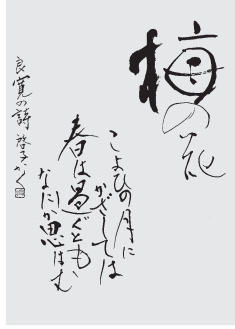 梅の花
こよひの月に
かざしては
春は過ぐとも、
なにか思はむ
良寛の詩 啓子かく